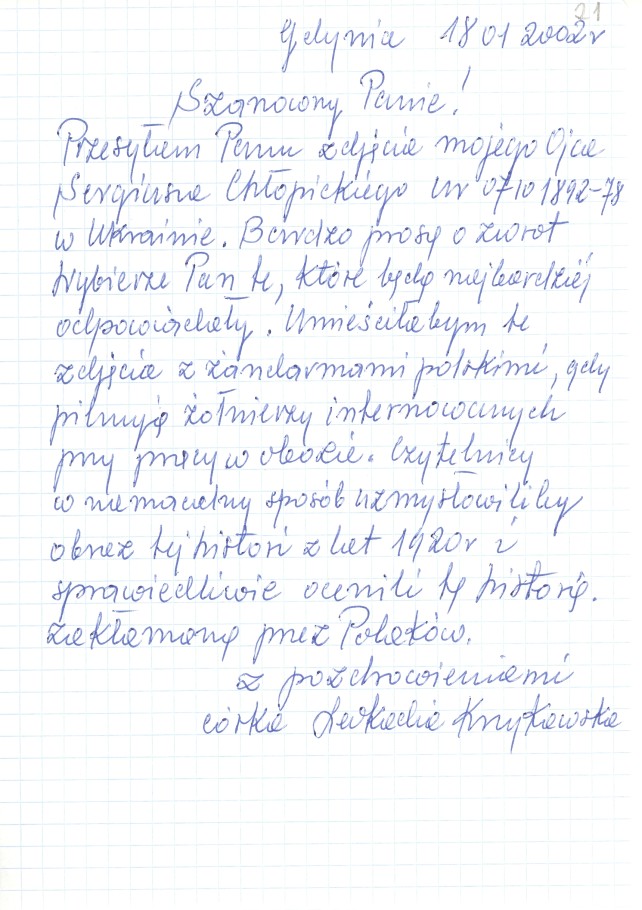 21
Gdynia 18 01 2002r
Szanowny Panie!
Przesyłam Panu zdjęcia mojego Ojca
Sergiusza Chłopickiego ur 07 10 1892-78
w Ukrainie. Bardzo proszę o zwrot
Wybierze Pan te, które będą najbardziej
odpowiadały. Umieściłabym te
zdjęcia z żandarmami polskimi, gdy
pilnują żołnierzy internowanych
przy pracy w obozie. Czytelnicy
w namacalny sposób uzmysłowiliby
obraz tej histori z lat 1920r i
sprawiedliwie ocenili tę historię.
zakłamaną przez Polaków.
z pozdrowieniami
córka Leokadia